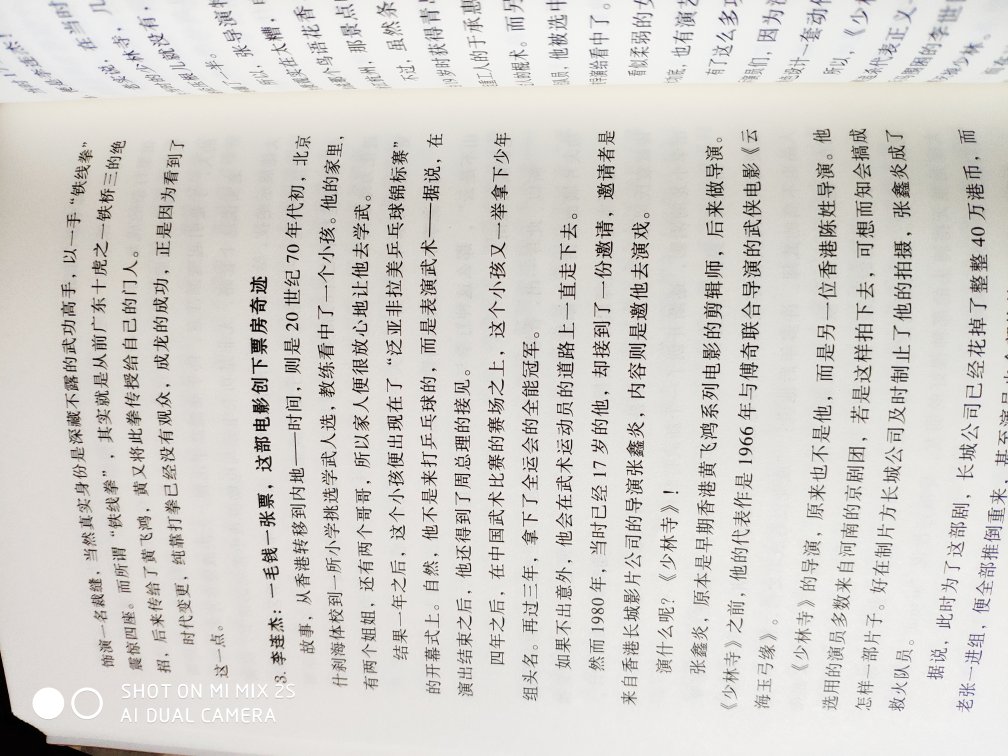 饰演一名裁缝，当然真实身份是深藏不露的武功高手，以一手“铁线拳”
震惊四座。而所谓“铁线拳”，其实就是从前广东十虎之一铁桥三的绝
招，后来传给了黄飞鸿，黄又将此拳传授给自己的门人。
时代变更，纯靠打拳已经没有观众，成龙的成功，正是因为看到了
这一点。
3. 李连杰：一毛钱一张票，这部电影创下票房奇迹
故事，从香港转移到内地——时间，则是 20 世纪 70 年代初，北京
什刹海体校到一所小学挑选学武人选，教练看中了一个小孩。他的家里，
有两个姐姐，还有两个哥哥，所以家人便很放心地让他去学武。
结果一年之后，这个小孩便出现在了“泛亚非拉美乒乓球锦标赛”
的开幕式上。自然，他不是来打乒乓球的，而是表演武术——据说，在
演出结束之后，他还得到了周总理的接见。
四年之后，在中国武术比赛的赛场之上，这个小孩又一举拿下少年
组头名。再过三年，拿下了全运会的全能冠军。
如果不出意外，他会在武术运动员的道路上一直走下去。
然而 1980 年，当时已经 17 岁的他，却接到了一份邀请，邀请者是
来自香港长城影片公司的导演张鑫炎，内容则是邀他去演戏。
演什么呢？《少林寺》！
张鑫炎，原本是早期香港黄飞鸿系列电影的剪辑师，后来做导演。
《少林寺》之前，他的代表作是 1966 年与傅奇联合导演的武侠电影《云
海玉弓缘》。
《少林寺》的导演，原来也不是他，而是另一位香港陈姓导演。他
选用的演员多数来自河南的京剧团，若是这样拍下去，可想而知会搞成
怎样一部片子。好在制片方长城公司及时制止了他的拍摄，张鑫炎成了
救火队员。
据说，此时为了这部剧，长城公司已经花掉了整整 40 万港币，而
老张一进组，便全部推倒重来，甚至演员
在当时
几
名少林寺，
果儿就没有，
一半。
所以，张导演特
实在太糟，
个鸟语花香
杭州，那景点
过，虽然条
岁时获得青
的于承惠
的根术。而另
队员，他被选中
导演给看中了。
看似柔弱的女
功底，也有演艺
有了这么多项
演员们，因为
设计一套动作
所以，《少林
代表正义一
困的李世民
少林。
SHOT ON MI MIX 2S
AI DUAL CAMERA